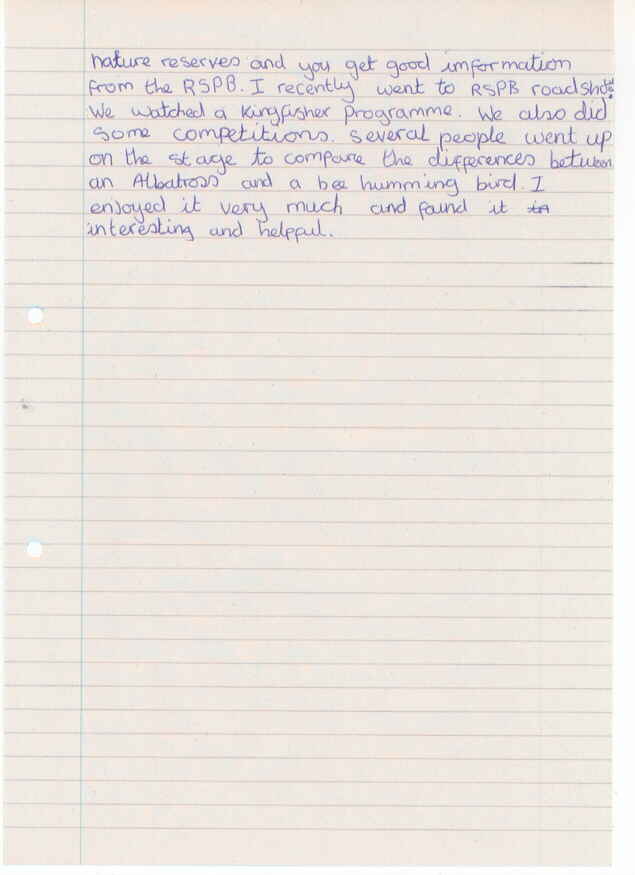 nature reserves and you get good imformation
from the RSPB. I recently went to RSPB roadshow.
We watched a Kingfisher Programme. We also did
some competitions. Several people went up
on the stage to compare the differences between
an Albatross and a bee humming bird. I
enjoyed it very much and found it
interesting and helpful.